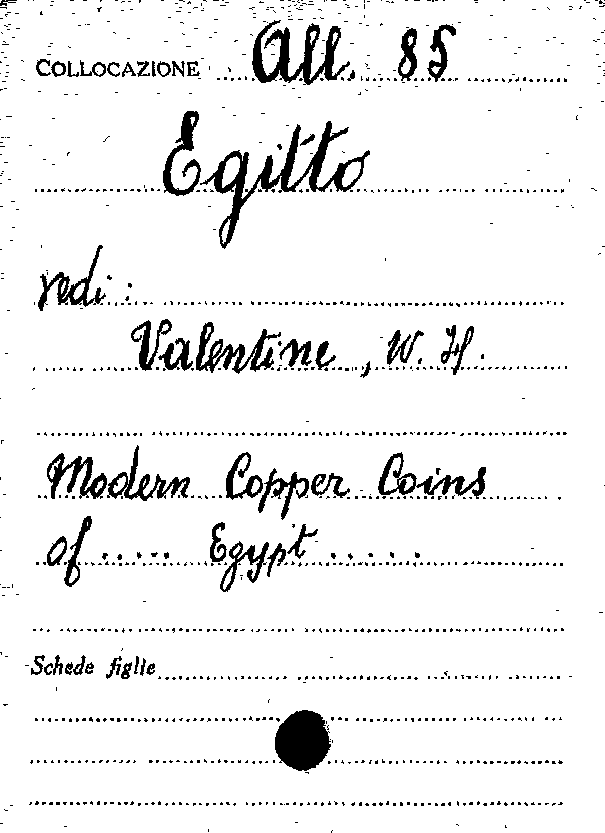 COLLOCAZIONE All. 85
Egitto
vedi:
Valentine, W. H.
Modern Copper Coins
of ..... Egypt .....
Schede figlie